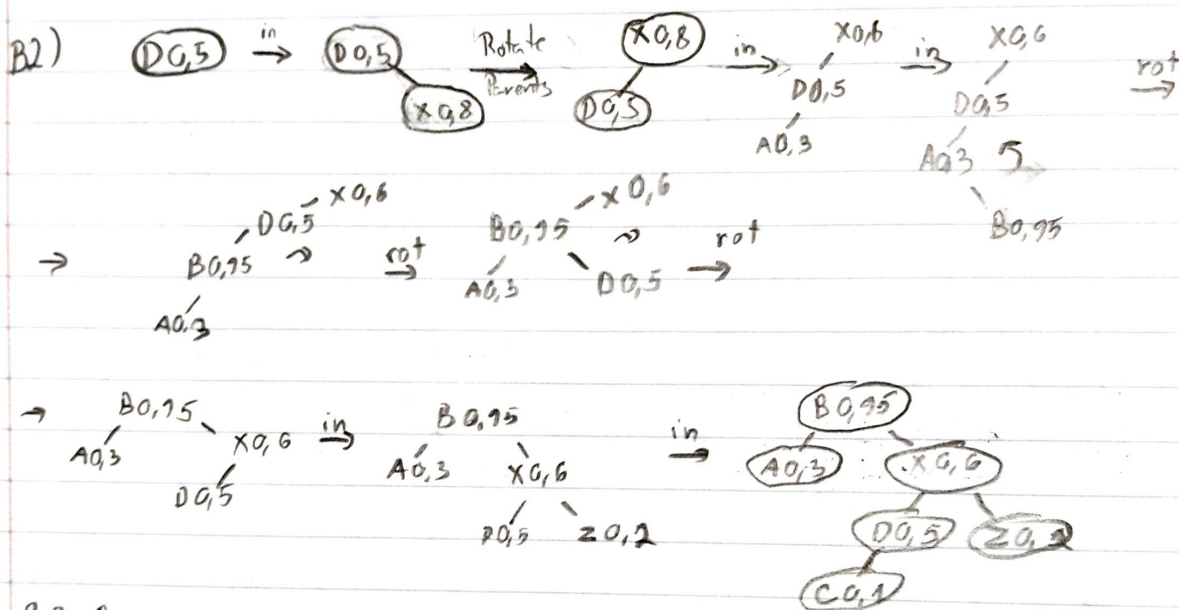 B2) D0,5 in → D0,5 X0,8 Rotate Parents → X0,8 D0,5 in → X0,6 D0,5 A0,3 in → X0,6 D0,5 A0,3 B0,95 rot →
→ X0,6 D0,5 B0,95 A0,3 rot → X0,6 B0,95 A0,3 D0,5 rot →
→ B0,95 A0,3 X0,6 D0,5 in → B0,95 A0,3 X0,6 D0,5 Z0,2 in → B0,95 A0,3 X0,6 D0,5 Z0,2 C0,1